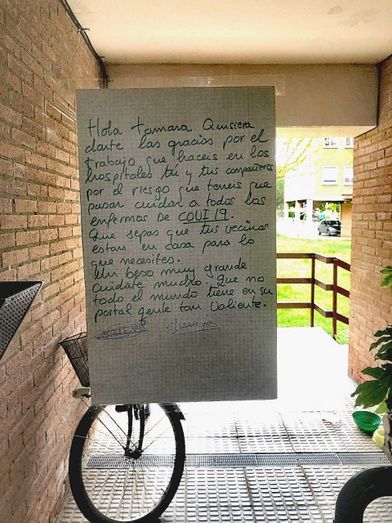 Hola Tamara Quisiera
darte las gracias por el
trabajo que haceis en los
hospitales tú y tus compañeros
por el riesgo que teneis que
pasar cuidar a todos los
enfermos de COVI 19.
Que sepas que tus vecinos
estan en casa para lo
que necesites.
Un beso muy grande
cuidate mucho. Que no
todo el mundo tiene en su
portal gente tan Valiente.